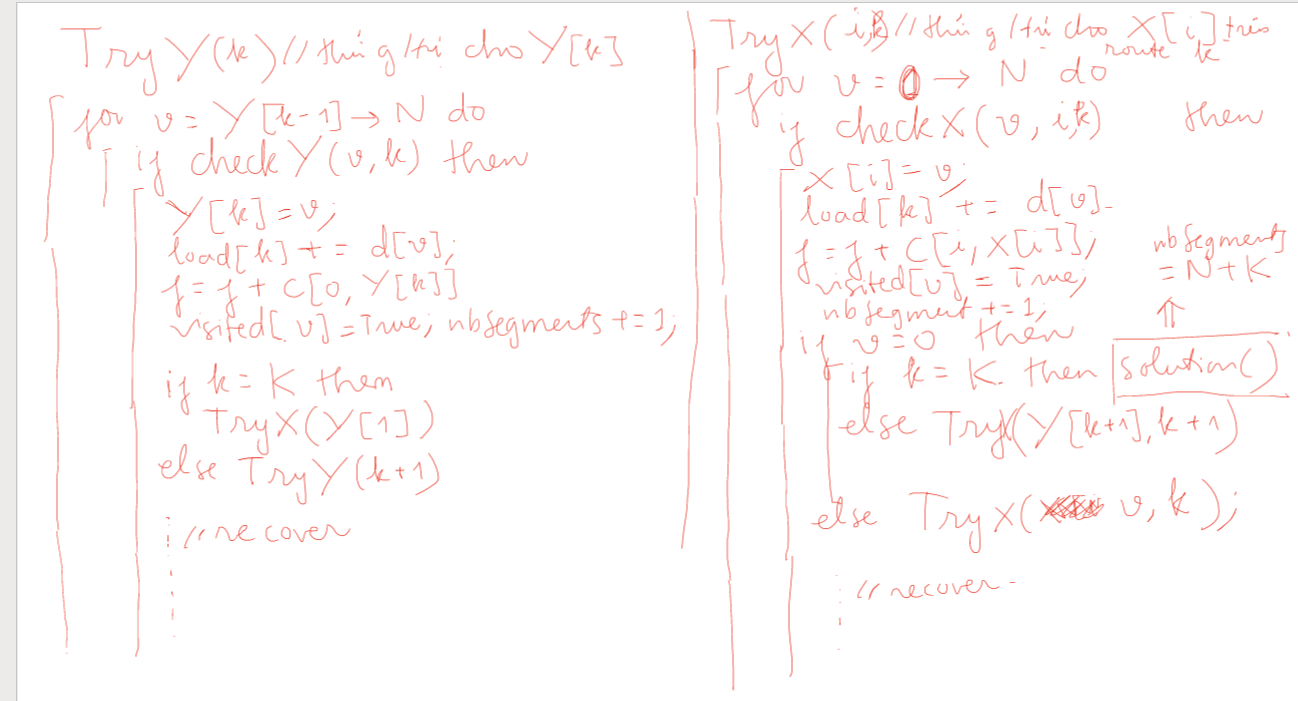 Try Y(k) // thử g/trị cho Y[k]
for v = Y[k-1] → N do
if check Y(v,k) then
Y[k] = v;
load[k] += d[v];
f = f + C[0, Y[k]]
visited[v] = True; nbsegments += 1;
if k = K then
Try X(Y[1])
else Try Y(k+1)
// recover
Try X(i,k) // thử g/trị cho X[i] trên
route k
for v = 0 → N do
if check X(v, i,k) then
X[i] = v;
load[k] += d[v].
f = f + C[i, X[i]];
visited[v] = True;
nbsegment += 1;
nbsegments
= N + K
⇑
if v = 0 then
if k = K. then solution()
else TryX(Y[k+1], k+1)
else Try X( v, k );
// recover -